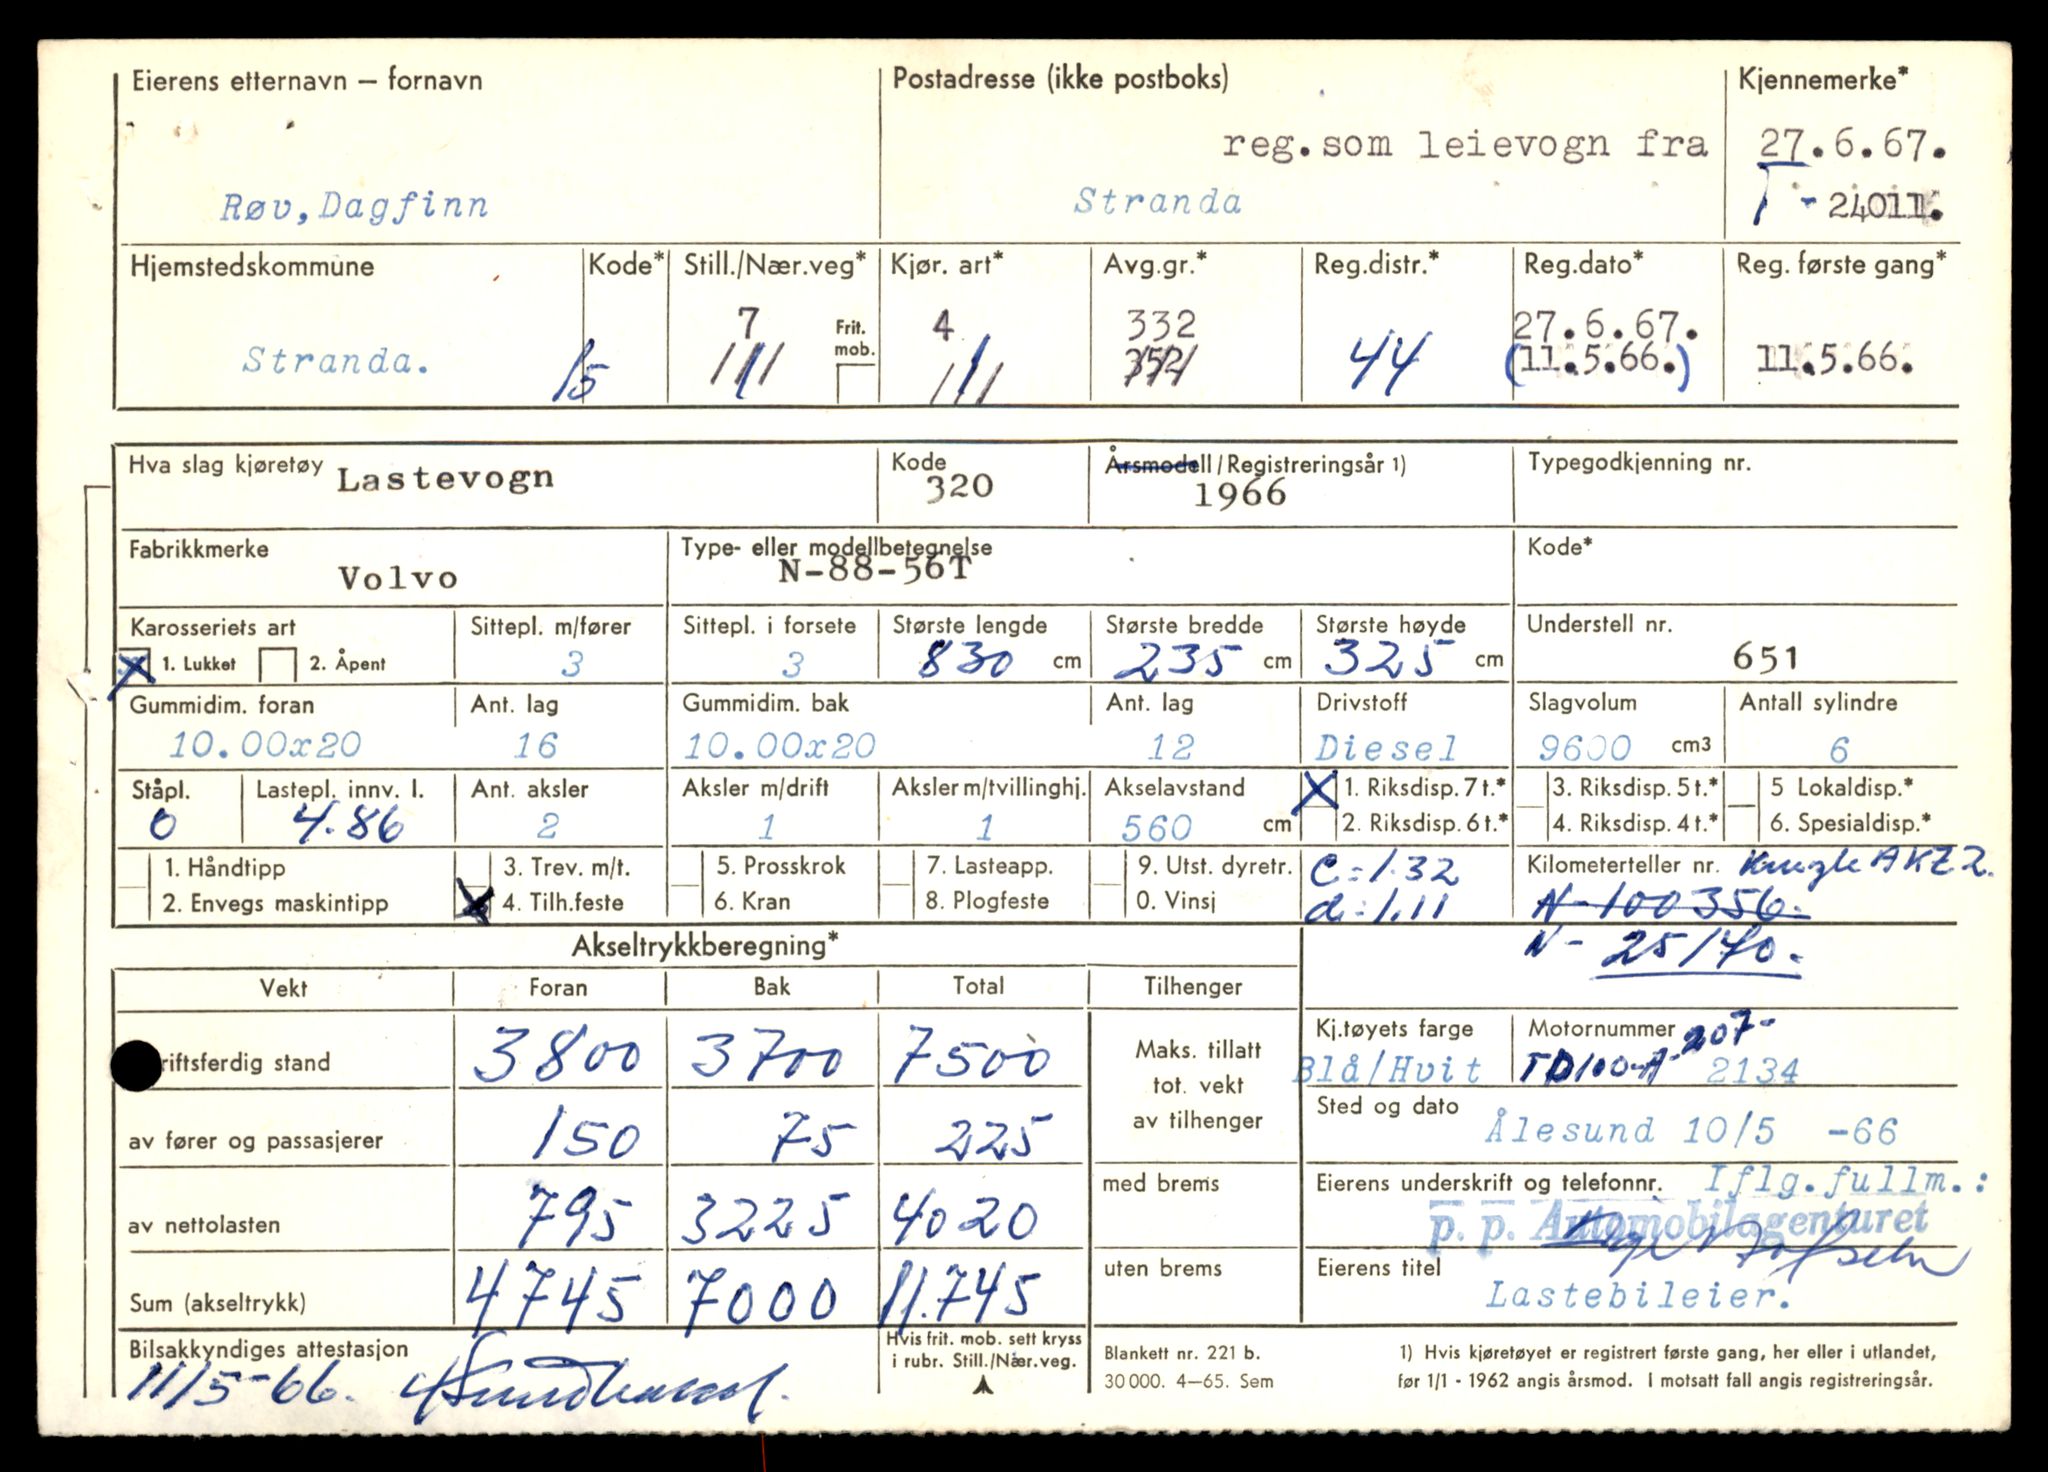 Eierens etternavn — fornavn Postadresse (ikke postboks) Kjennemerke*
reg.som leievogn fra 27.6.67.
Røv, Dagfinn Stranda T - 24011.
Hjemstedskommune Kode* Still./Nær.veg* Kjør. art* Avg.gr.* Reg.distr.* Reg.dato* Reg. første gang*
7 Frit. mob. 4 332 27.6.67.
Stranda. 15 352 44 (11.5.66.) 11.5.66.
Hva slag kjøretøy Lastevogn Kode 320 Årsmodell/Registreringsår 1) 1966 Typegodkjenning nr.
Fabrikkmerke Type- eller modellbetegnelse Kode*
Volvo N-88-56T
Karosseriets art Sittepl. m/fører Sittepl. i forsete Største lengde Største bredde Største høyde Understell nr.
X 1. Lukket 2. Åpent 3 3 830 cm 235 cm 325 cm 651
Gummidim. foran Ant. lag Gummidim. bak Ant. lag Drivstoff Slagvolum Antall sylindre
10.00x20 16 10.00x20 12 Diesel 9600 cm3 6
Ståpl. Lastepl. innv. l. Ant. aksler Aksler m/drift Aksler m/tvillinghj. Akselavstand X 1. Riksdisp. 7 t.* 3. Riksdisp. 5 t.* 5 Lokaldisp.*
0 4.86 2 1 1 560 cm 2. Riksdisp. 6 t.* 4. Riksdisp. 4 t.* 6. Spesialdisp.*
1. Håndtipp 3. Trev. m/t. 5. Prosskrok 7. Lasteapp. 9. Utst. dyretr. C = 1.32 Kilometerteller nr. Kingle AKZ 2.
2. Envegs maskintipp X 4. Tilh.feste 6. Kran 8. Plogfeste 0. Vinsj d = 1.11 N-100356.
Akseltrykkberegning* N - 25170.
Vekt Foran Bak Total Tilhenger
riftsferdig stand 3800 3700 7500 Maks. tillatt tot. vekt av tilhenger Kj.tøyets farge Motornummer 207-
Blå/Hvit TD100-A- 2134
av fører og passasjerer 150 75 225 Sted og dato Ålesund 10/5 -66
av nettolasten 795 3225 4020 med brems Eierens underskrift og telefonnr. Iflg.fullm.:
p. p. Automobilagenturet
Sum (akseltrykk) 4745 7000 11.745 uten brems Eierens titel Lastebileier.
Bilsakkyndiges attestasjon Hvis frit. mob. sett kryss i rubr. Still./Nær.veg. Blankett nr. 221 b. 1) Hvis kjøretøyet er registrert første gang, her eller i utlandet,
11/5-66. 30 000. 4—65. Sem før 1/1 - 1962 angis årsmod. I motsatt fall angis registreringsår.